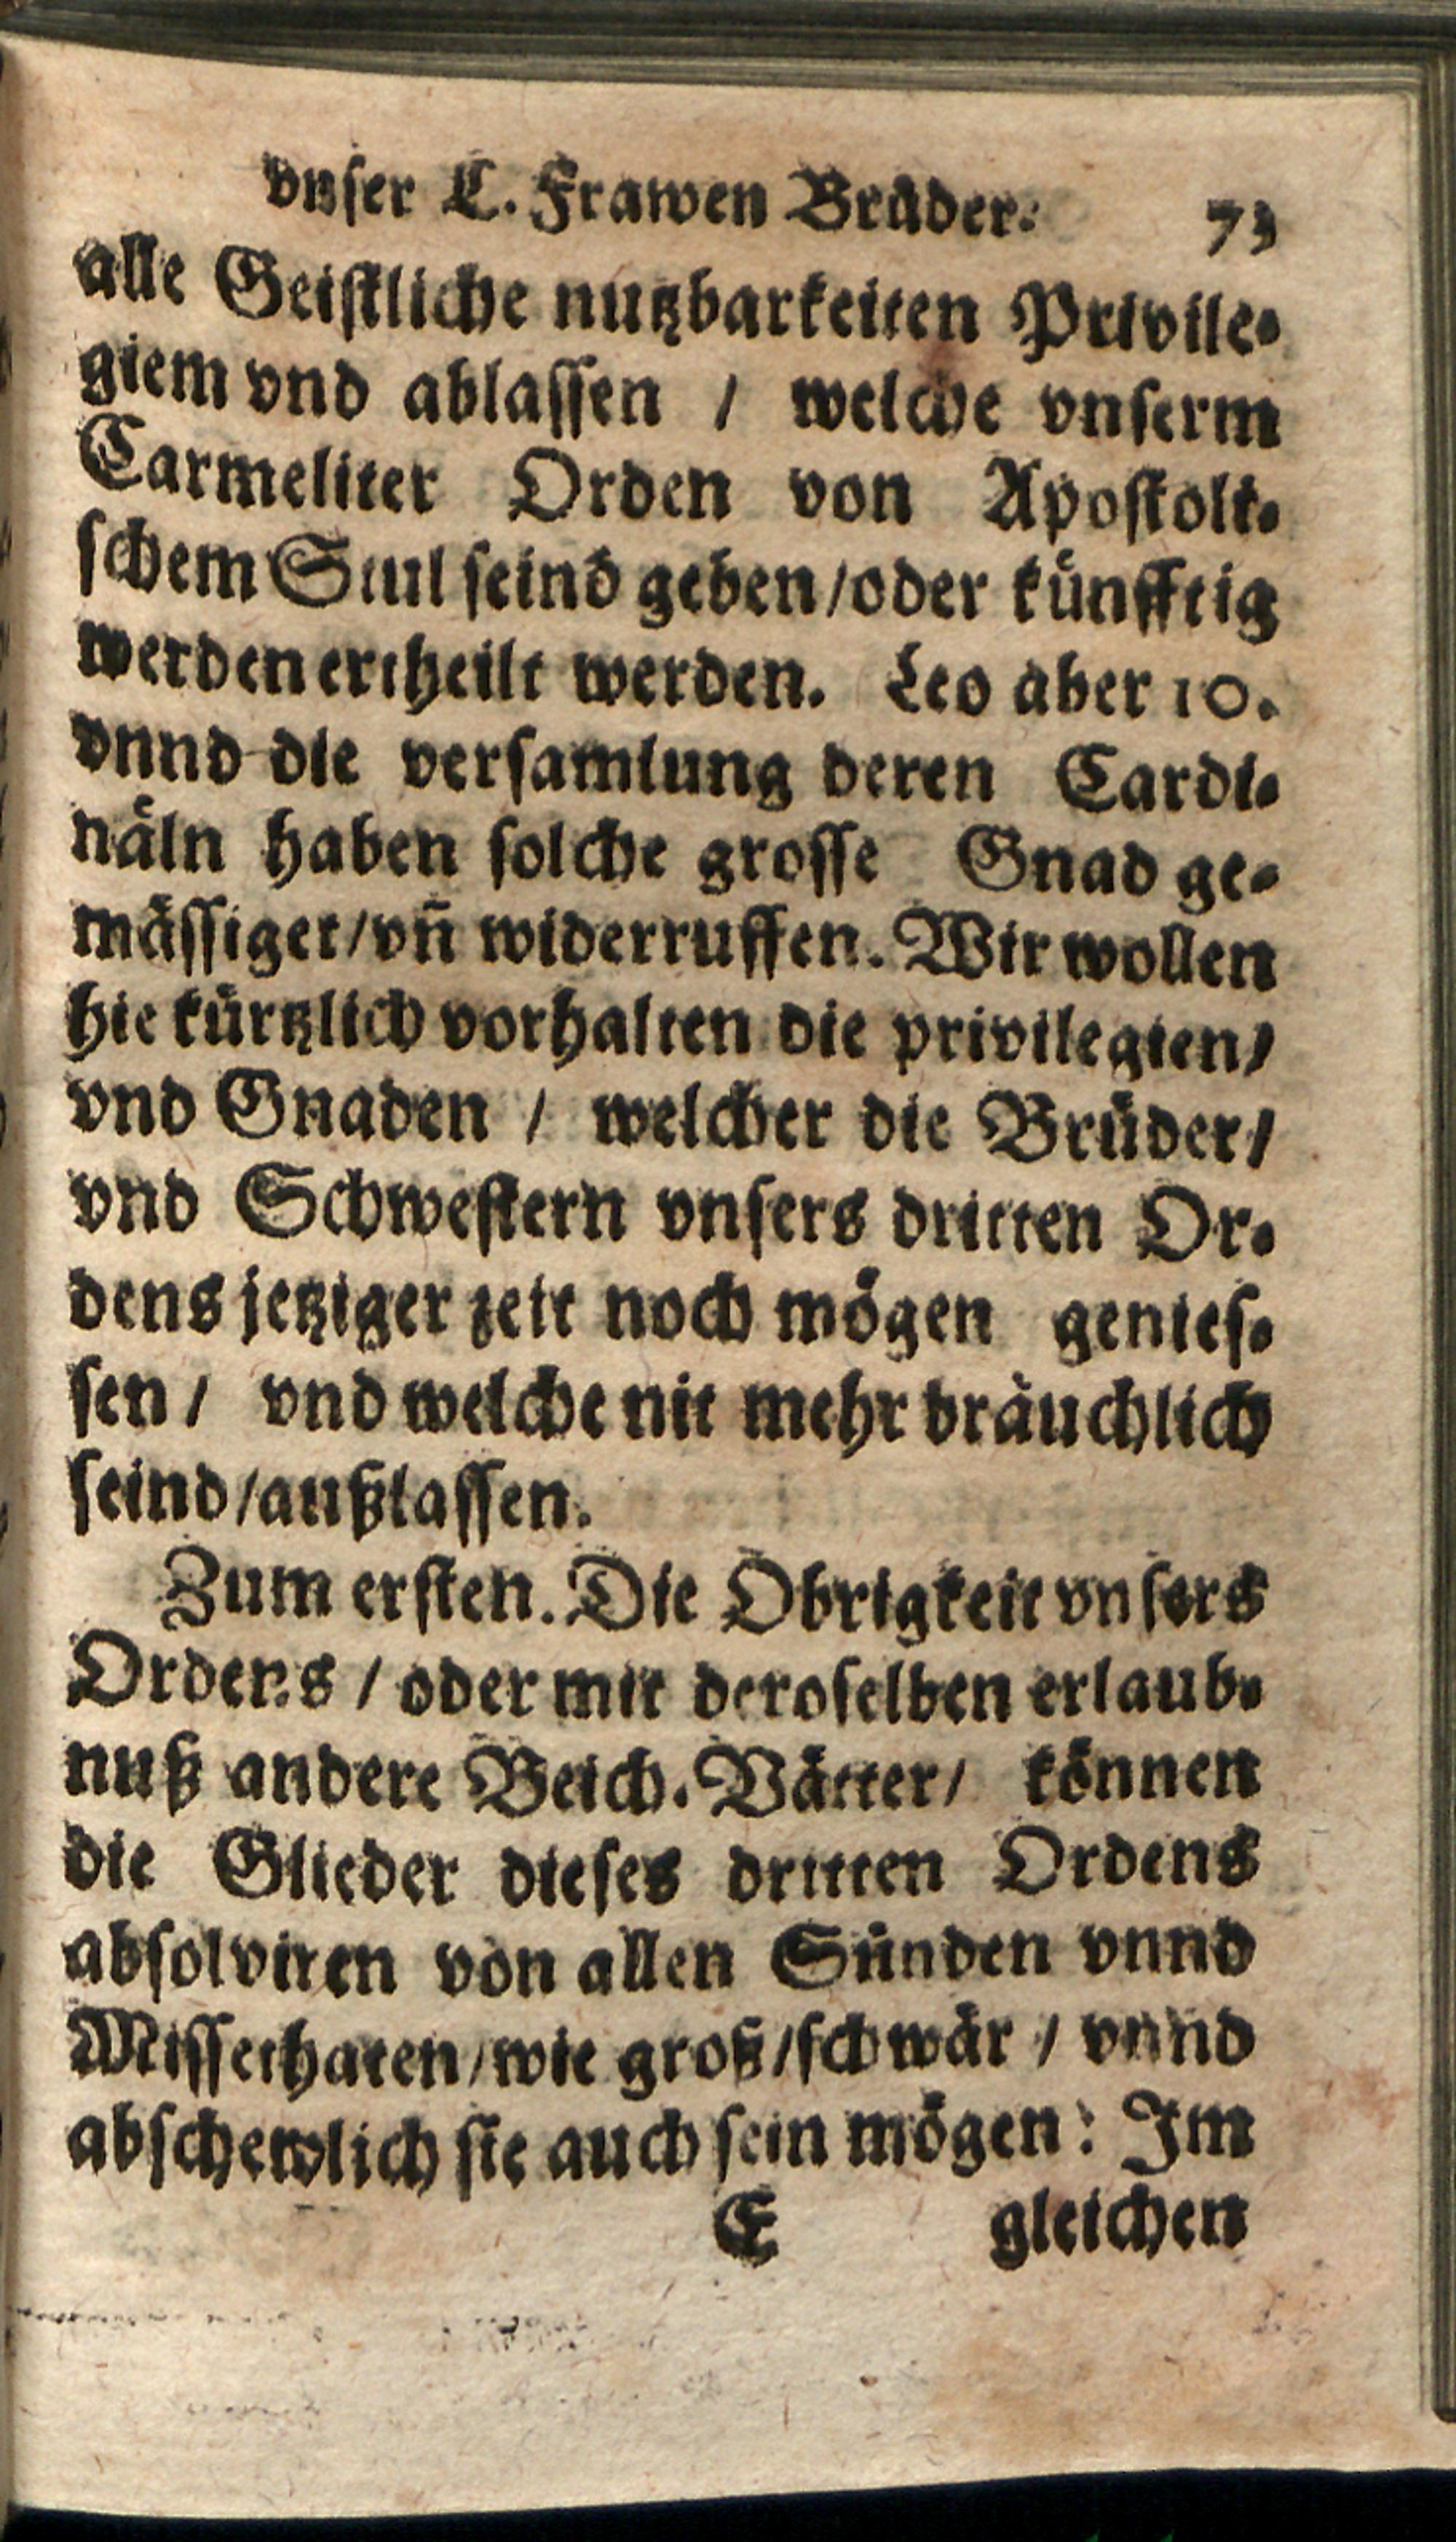 vnser L. Frawen Brůder. 73
alle Geistliche nutzbarkeiten Privile-
giem vnd ablassen / welche vnserm
Carmeliter Orden von Apostoli-
schem Stul seind geben/oder künfftig
werden ertheilt werden. Leo aber 10.
vnnd die versamlung deren Cardi-
näln haben solche grosse Gnad ge-
mässiget/vñ widerruffen. Wir wollen
hie kürtzlich vorhalten die privilegien/
vnd Gnaden / welcher die Brüder/
vnd Schwestern vnsers dritten Or-
dens jetziger zeit noch mögen genies-
sen / vnd welche nit mehr bräuchlich
seind/außlassen.
Zum ersten. Die Obrigkeit vnsers
Ordens / oder mit deroselben erlaub-
nuß andere Beich-Vätter/ können
die Glieder dieses dritten Ordens
absolviren von allen Sünden vnnd
Missethaten/wie groß/schwär / vnnd
abschewlich sie auch sein mögen: Im
E gleichen